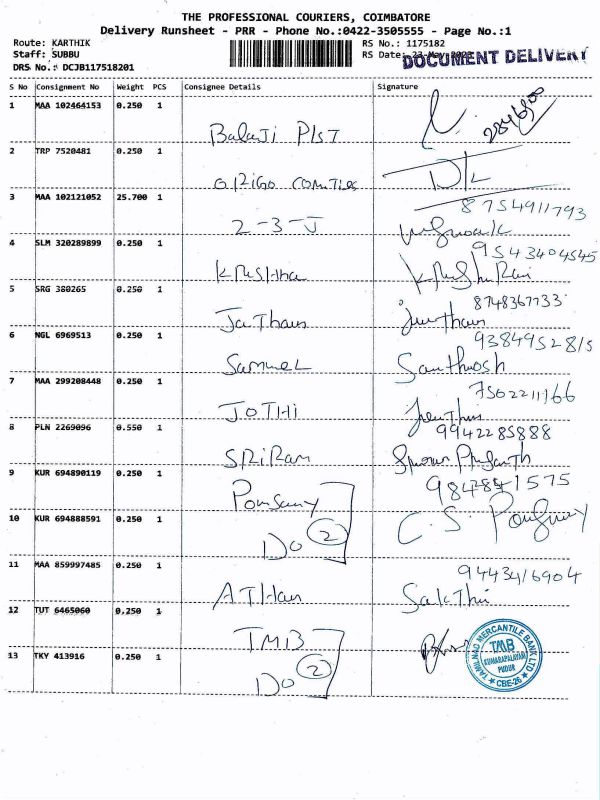 THE PROFESSIONAL COURIERS, COIMBATORE
Delivery Runsheet - PRR - Phone No.:0422-3505555 - Page No.:1
Route: KARTHIK
Staff: SUBBU
DRS No.: DCJB117518201
RS No.: 1175182
RS Date: 23-May-2023
DOCUMENT DELIVERY
S No Consignment No Weight PCS Consignee Details Signature
1 MAA 102464153 0.250 1
Balaji Plst
2 TRP 7520481 0.250 1
D/L
3 MAA 102121052 25.700 1
8754911793
2-3-J
4 SLM 320289899 0.250 1
9543404545
5 SRG 380265 0.250 1
8748367733
6 NGL 6969513 0.250 1
9384952815
Samuel Santhosh
7 MAA 299208448 0.250 1
7502211166
JOTHI
8 PLN 2269096 0.550 1
9942285888
SRiRam
9 KUR 694890119 0.250 1
Ponsamy
10 KUR 694888591 0.250 1
C.S.
Do 2
11 MAA 859997485 0.250 1
9443416904
Sakthi
12 TUT 6465060 0.250 1
TMB
13 TKY 413916 0.250 1
Do 2
TAMILNAD MERCANTILE BANK LTD
TMB
KUMARAPALAYAM
PUDUR
CBE-26